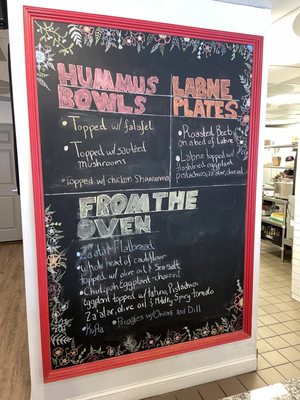 HUMMUS
BOWLS
• Topped w/ falafel
• Topped w/ sautéed
mushrooms
• Topped w/ chicken Shawarma
LABNE
PLATES
• Roasted Beets
on a bed of Labne
• Labne topped w/
eggplant
pistachios, za'atar, olive oil
FROM THE
OVEN
• Za'atar Flatbread
• whole head of cauliflower
topped w/ olive oil & Sea salt
• Eggplant - charred
Eggplant topped w/ tahina, Pistachios
Za'atar, olive oil & Mildly Spicy Tomato
• Kafta
• Perogies w/ Onions and Dill